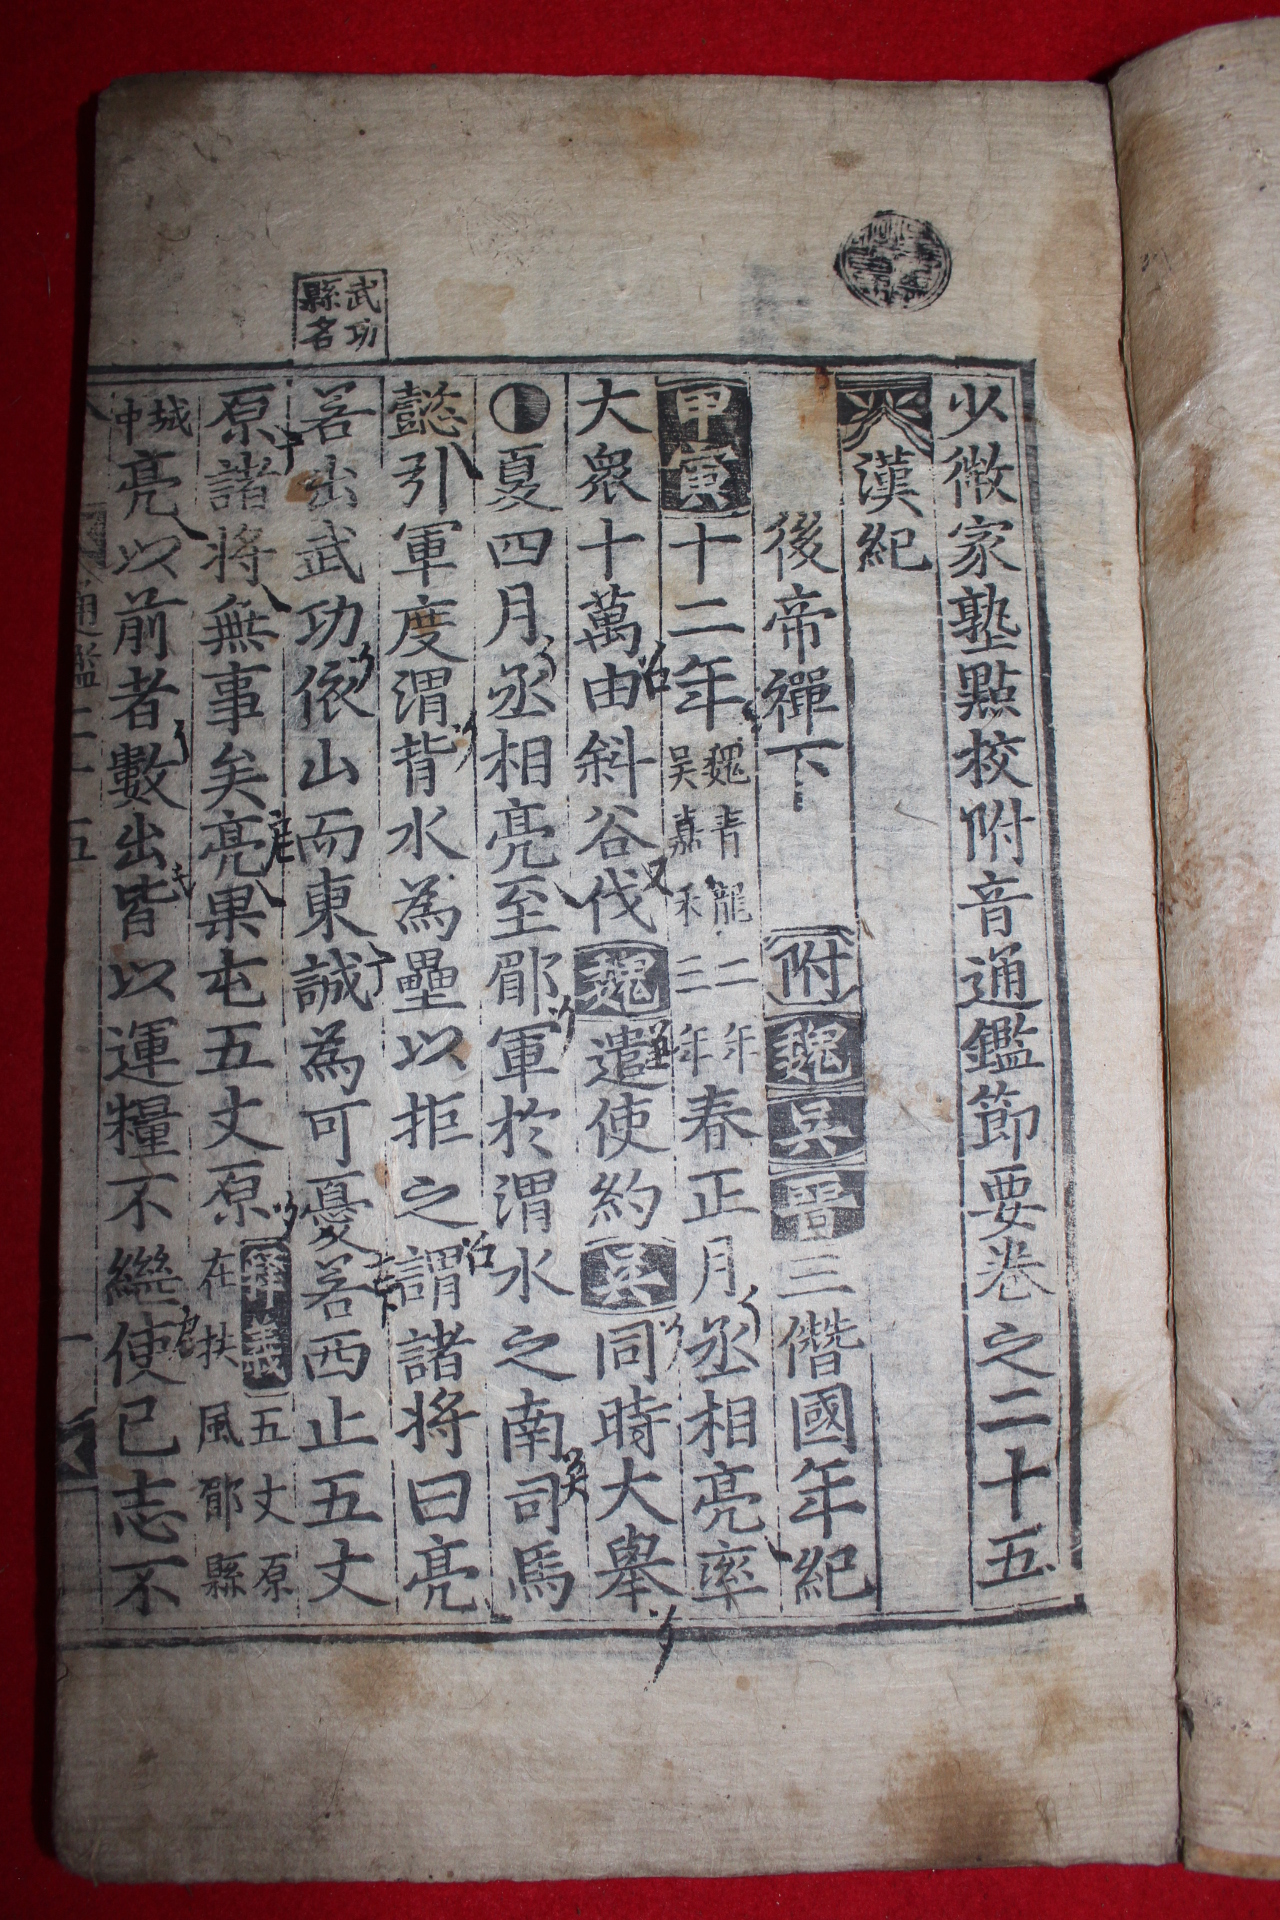 少微家塾點校附音通鑑節要卷之二十五
漢紀
後帝禪下 附魏吳晉三僭國年紀
甲寅十二年魏青龍二年吳嘉禾三年春正月丞相亮率
大衆十萬由斜谷伐魏遣使約吳同時大擧
夏四月丞相亮至郿軍於渭水之南司馬
懿引軍度渭背水為壘以拒之謂諸將曰亮
若出武功依山而東誠為可憂若西止五丈
原諸將無事矣亮果屯五丈原釋義五丈原在扶風郿縣
城中亮以前者數出皆以運糧不繼使已志不
武功縣名
通鑑二十五
一